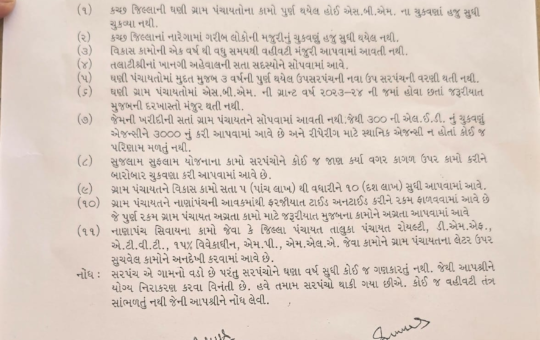 (૧) કચ્છ જિલ્લાની ઘણી ગ્રામ પંચાયતોના કામો પુર્ણ થયેલ હોઈ એસ.બી.એમ. ના ચુકવણાં હજુ સુધી
ચુકવ્યા નથી.
(૨) કચ્છ જિલ્લાનાં નારેગામાં ગરીબ લોકોની મજુરીનું ચુકવણું હજુ સુધી થયેલ નથી.
(૩) વિકાસ કામોની એક વર્ષ થી વધુ સમયથી વહીવટી મંજુરી આપવામાં આવતી નથી.
(૪) તલાટીશ્રીનાં ખાનગી અહેવાલની સતા સદસ્યોને સોપવામાં આવે.
(૫) ઘણી પંચાયતોમાં મુદત મુજબ ૩ વર્ષની પુર્ણ થયેલ ઉપસરપંચની નવા ઉપ સરપંચની વરણી થતી નથી.
(૬) ઘણી ગ્રામ પંચાયતોમાં એસ.બી.એમ. ની ગ્રાન્ટ વર્ષ ૨૦૨૩-૨૪ ની જમાં હોવા છતાં જરૂરીયાત
મુજબની દરખાસ્તો મંજુર થતી નથી.
(૭) જેમની ખરીદીની સતાં ગ્રામ પંચાયતને સોપવામાં આવતી નથી.જેથી ૩૦૦ ની એલ.ઈ.ડી. નું ચુકવણું
એજન્સીને ૩૦૦૦ નું કરી આપવામાં આવે છે અને રીપેરીંગ માટે સ્થાનિક એજન્સી ન હોતાં કોઈ જ
પરિણામ મળતું નથી.
(૮) સુજલામ સુફલામ યોજનાના કામો સરપંચોને કોઈ જ જાણ કર્યા વગર કાગળ ઉપર કામો કરીને
બારોબાર ચુકવણા કરી આપવામાં આવે છે.
(૯) ગ્રામ પંચાયતને વિકાસ કામો સતા ૫ (પાંચ લાખ) થી વધારીને ૧૦ (દશ લાખ) સુધી આપવામાં આવે.
(૧૦) ગ્રામ પંચાયતને નાણાંપંચની આવકમાંથી ફરજીયાત ટાઈડ અનટાઈડ કરીને રકમ ફાળવવામાં આવે છે
જે પુર્ણ રકમ ગ્રામ પંચાયત અગ્રતા કામો માટે જરૂરીયાત મુજબના કામોને અગ્રતા આપવામાં આવે
(૧૧) નાણાપંચ સિવાયના કામો જેવા કે જિલ્લા પંચાયત તાલુકા પંચાયત રોયલ્ટી, ડી.એમ.એફ.,
એ.ટી.વી.ટી., ૧૫% વિવેકાધીન, એમ.પી., એમ.એલ.એ. જેવા કામોને ગ્રામ પંચાયતના લેટર ઉપર
સુચવેલ કામોને અનદેખી કરવામાં આવે છે.
નોંધ : સરપંચ એ ગામનો વડો છે પરંતુ સરપંચોને ઘણા વર્ષ સુધી કોઈ જ ગણકારતું નથી. જેથી આપશ્રીને
યોગ્ય નિરાકરણ કરવા વિનંતી છે. હવે તમામ સરપંચો થાકી ગયા છીએ. કોઈ જ વહીવટી તંત્ર
સાંભળતું નથી જેની આપશ્રીને નોંધ લેવી.